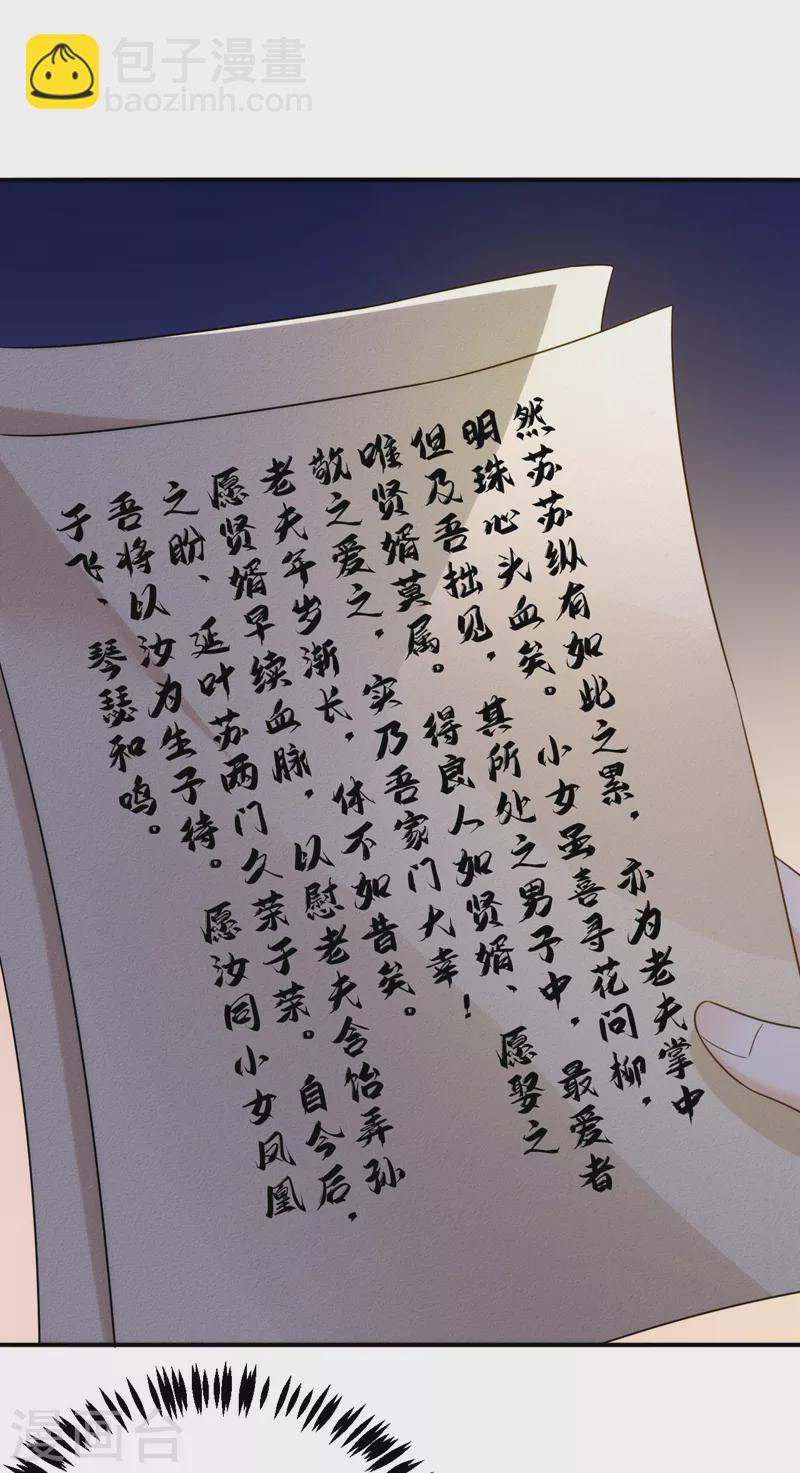 包子漫畫
baozimh.com
然苏苏纵有如此之累，亦为老夫掌中
明珠心头血矣。小女虽喜寻花问柳，
但及吾拙见，其所处之男子中，最爱者
唯贤婿莫属。得良人如贤婿、愿娶之
敬之爱之，实乃吾家门大幸！
老夫年岁渐长，体不如昔矣。
愿贤婿早续血脉，以慰老夫含饴弄孙
之盼、延叶苏两门久荣于荣。自今后，
吾将以汝为生子待。愿汝同小女凤凰
于飞、琴瑟和鸣。
漫画台